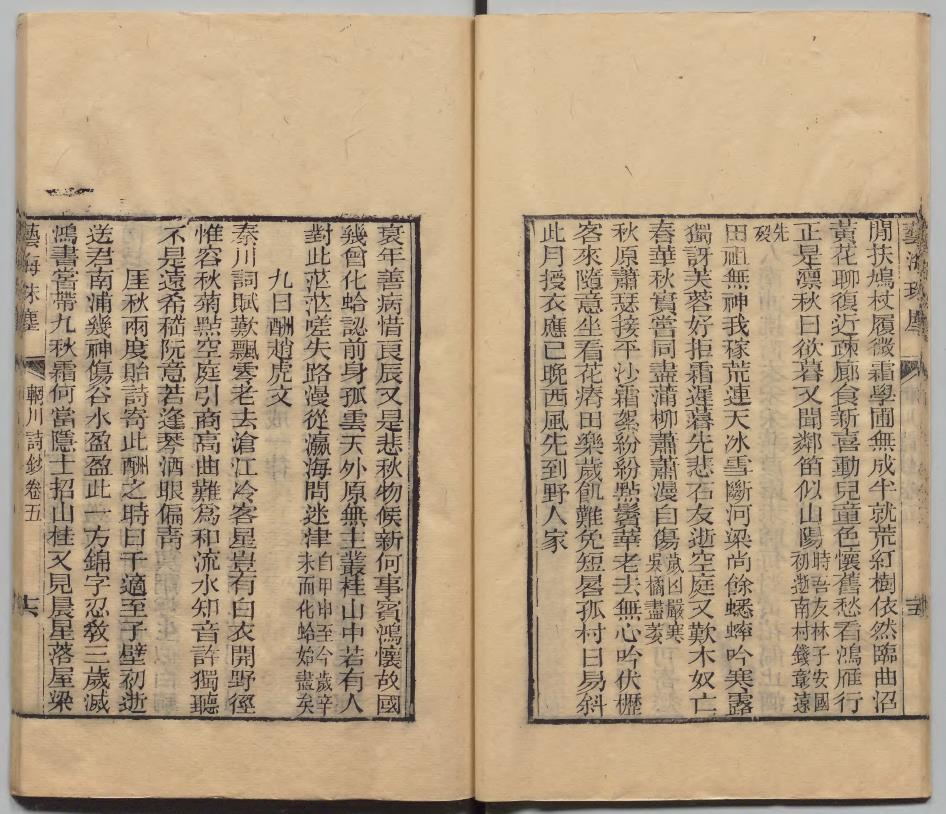 閒扶鳩杖履微霜學圃無成半就荒紅樹依然臨曲沼
黃花聊復近疎廊食新喜動兒童色懷舊愁看鴻雁行
正是凛秋日欲暮又聞鄰笛似山陽時吾友林子安國初逝南村錢章遠
先歿
田祖無神我稼荒連天冰雪斷河梁尚餘蟋蟀吟寒露
獨訝芙蓉好拒霜遲暮先悲石友逝空庭又歎木奴亡
春華秋實當同盡蒲柳蕭蕭漫自傷歲凶嚴寒吳橘盡萎
秋原蕭瑟接平沙霜絮紛紛點鬢華老去無心吟伏櫪
客來隨意坐看花瘠田樂歲飢難免短晷孤村日易斜
此月授衣應已晚西風先到野人家
衰年善病惜良辰又是悲秋物候新何事賓鴻懷故國
幾曾化蛤認前身孤雲天外原無主叢桂山中若有人
對此茫茫嗟失路漫從瀛海問迷津自甲申至今歲辛未而化蛤始盡矣
九日酬趙虎文
秦川詞賦歎飄零老去滄江冷客星豈有白衣開野徑
惟容秋菊點空庭引商高曲難為和流水知音許獨聽
不是遠希嵇阮意若逢琴酒眼偏青
厓秋兩度貽詩寄此酬之時曰千適至子壁初逝
送君南浦幾神傷谷水盈盈此一方錦字忍教三歲滅
鴻書當帶九秋霜何當隱士招山桂又見晨星落屋梁
藝海珠塵
輞川詩鈔卷五
十六